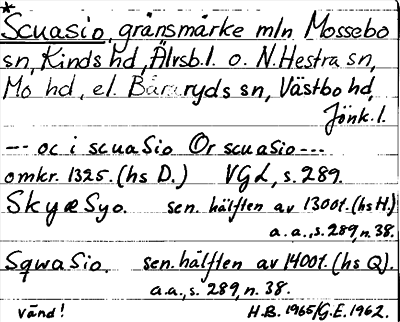 *
Scuasio, gränsmärke mln Mossebo
sn, Kinds hd, Älvsb.l. o. N.Hestra sn,
Mo hd, el. Båraryds sn, Västbo hd,
Jönk.l.
--- oc i scuaSio Or scuaSio---
omkr. 1325. (hs D.) VGL, s. 289.
SkyæSyo. sen. hälften av 1300t. (hs H.)
a.a., s. 289, n. 38.
SqwaSio. sen. hälften av 1400t. (hs Q).
a.a., s. 289, n. 38.
vänd! H.B. 1965/G.E. 1962.